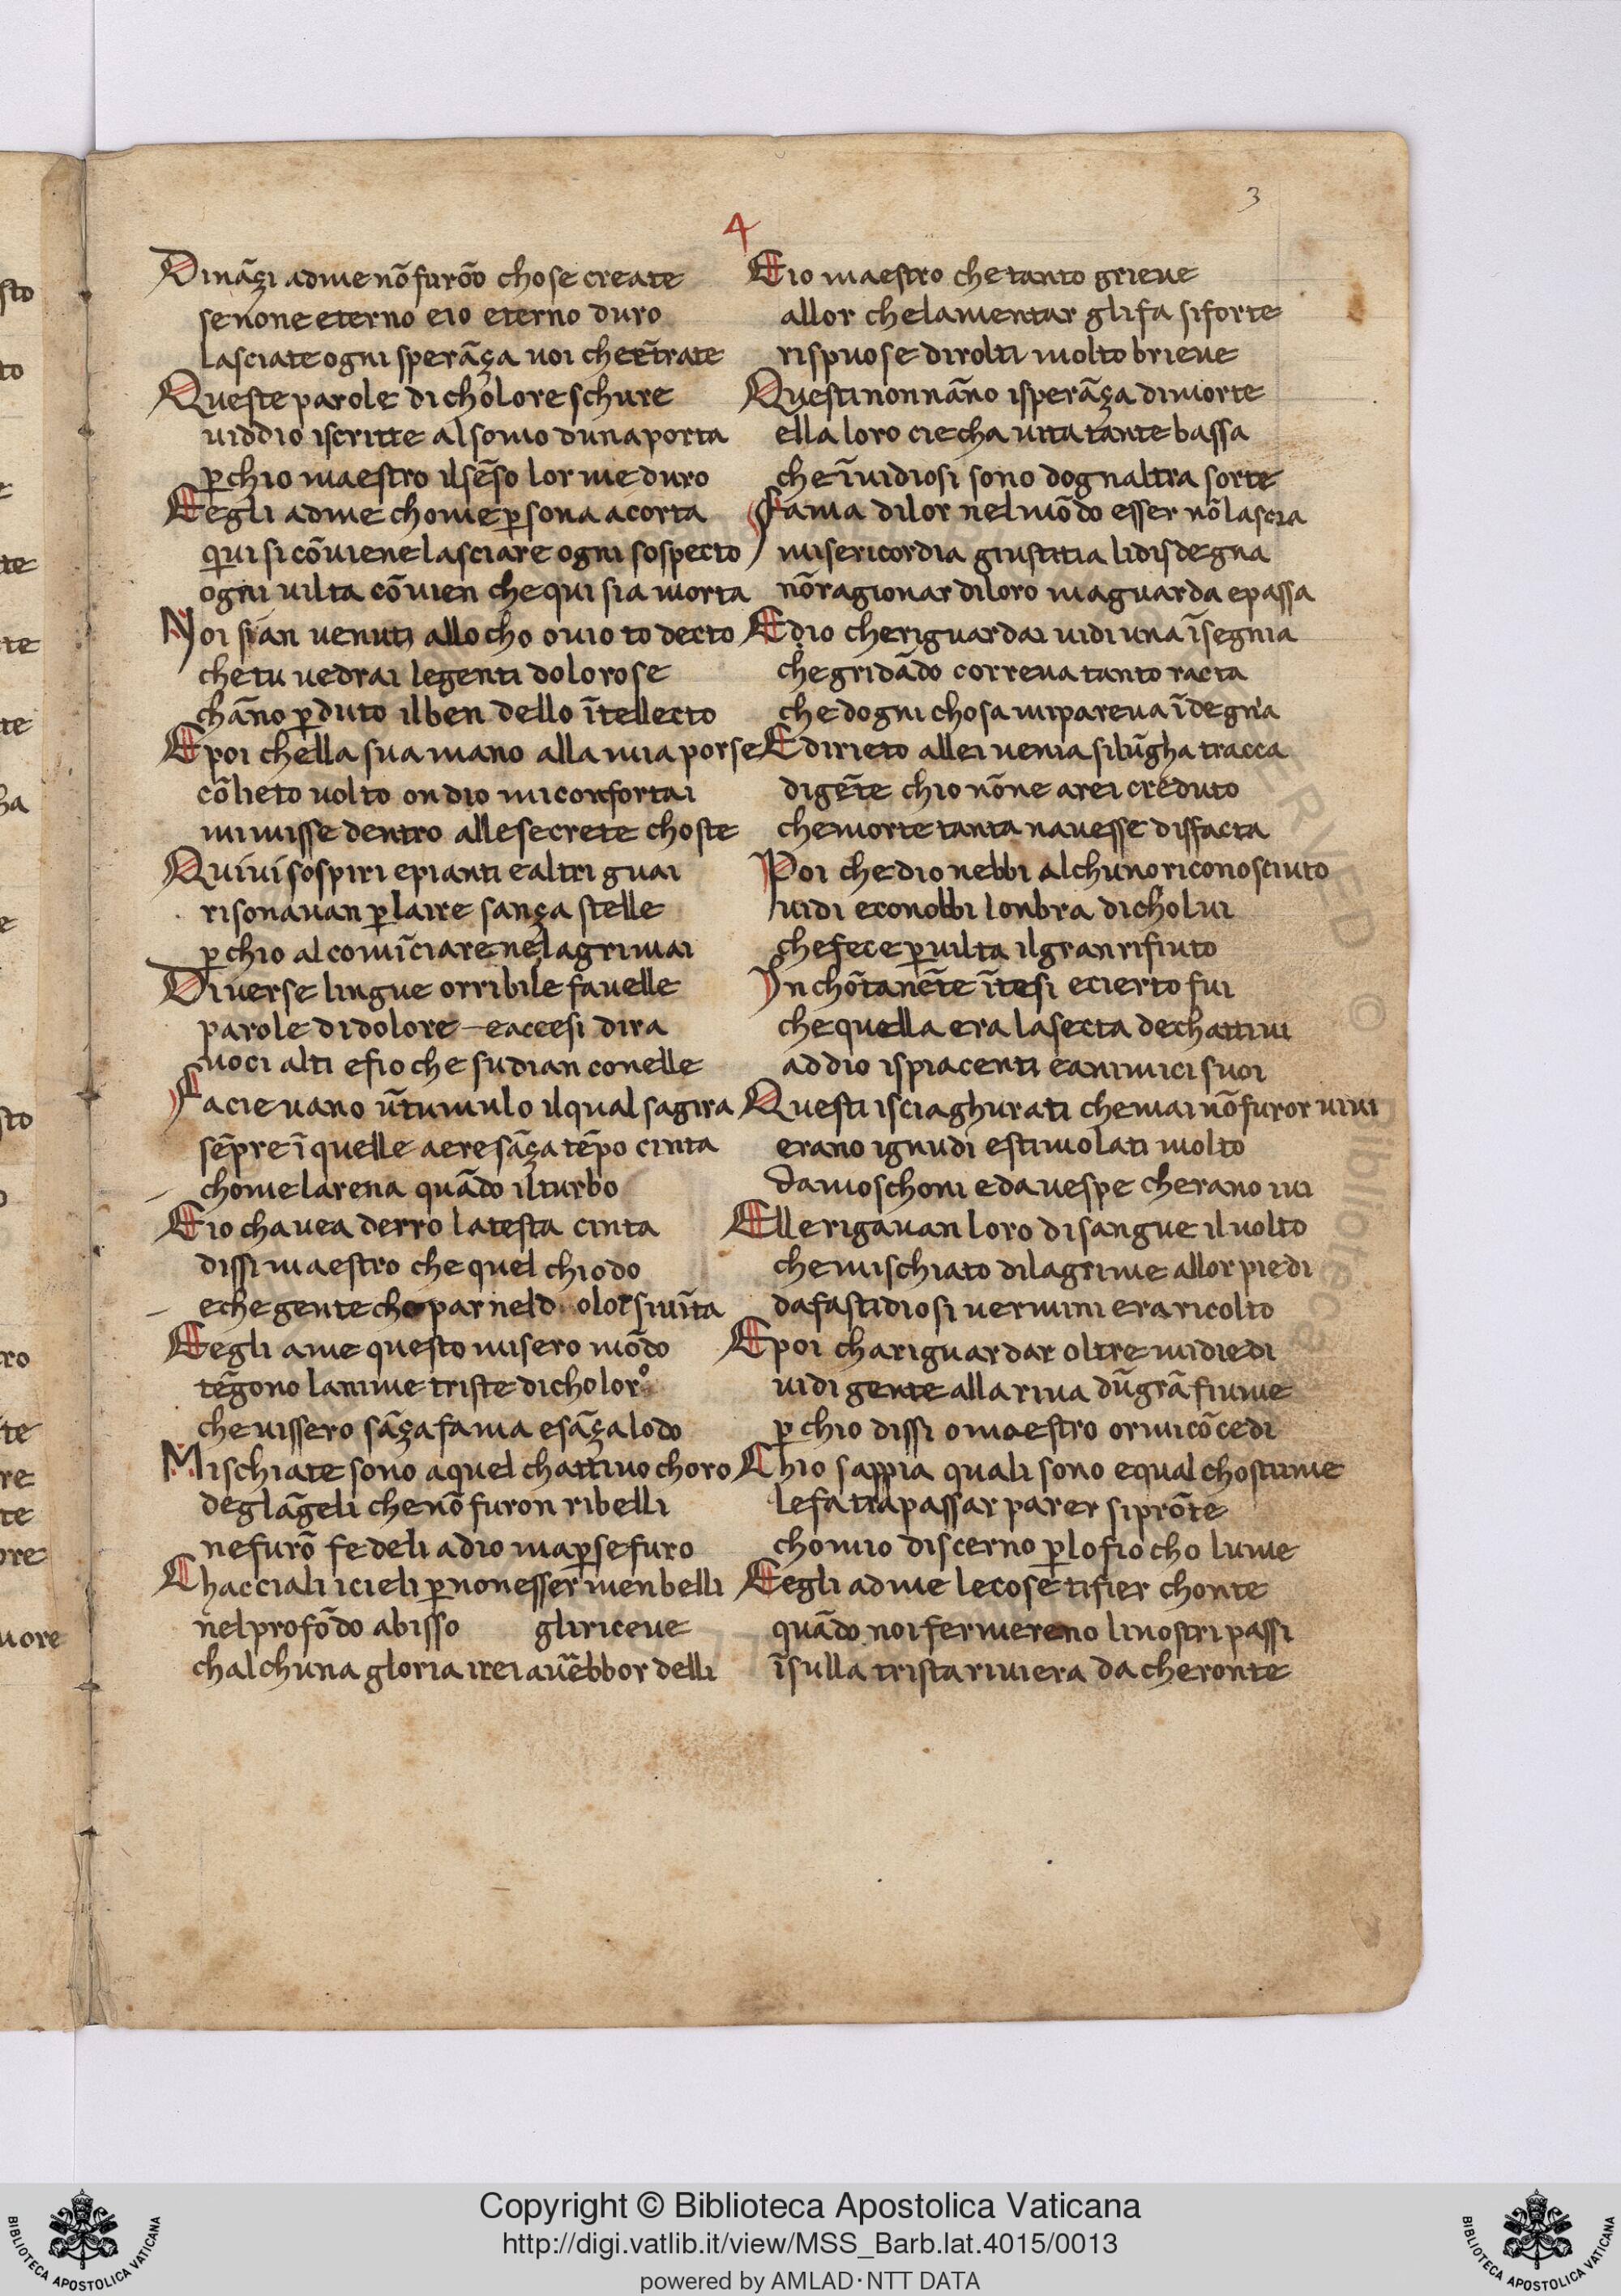 3
4
Dinãçi adme nõ furoõ chose create
senone eterno eio eterno duro
lasciate ogni sperãça uoi che ẽtrate
Queste parole di cholore schure
uiddio iscritte alsomo duna porta
p̱chio maestro ilsẽso lor me duro
Eegli adme chome p̱sona acorta
qui si cõuiene lasciare ogni sospecto
ogni uilta cõuien che qui sia morta
Noi sian uenuti allocho ouio to decto
che tu uedrai legenti dolorose
chãno p̱duto ilben dello ĩtellecto
Epoi chella sua mano alla mia porse
cõlieto uolto ondio mi confortai
mi misse dentro alle secrete choste
Quiui sospiri epianti ealtri guai
risonauan p̱laire sança stelle
p̱chio al comĩciare ne lagrimai
Diuerse lingue orribile fauelle
parole di dolore eaccesi dira
uoci alti efioche sudian conelle
Facieuano ũtumulo ilqual sagira
sẽpre ĩ quelle aere sãça tẽpo cinta
chome larena quãdo ilturbo
Eio chauea derro latesta cinta
dissi maestro che quel chiodo
eche gente che par nel d olor siuĩta
Eegli ame questo misero mõdo
tẽgono lanime triste di choloro
che uissero sãça fama esãça lodo
Mischiate sono aquel chattiuo choro
deglãgeli che nõ furon ribelli
ne furõ fedeli adio map̱se furo
Chacciali icieli p̱nonesser menbelli
nelprofõdo abisso gli riceue
chalchuna gloria irei auẽbbor delli
Eio maestro che tanto grieue
allor chelamentar gli fa siforte
rispuose dirolti molto brieue
Questi nonnãno isperãça dimorte
ella loro ciecha uita tante bassa
che ĩuidiosi sono dognaltra sorte
Fama dilor nelmõdo esser nõlascia
misericordia giustitia lidisdegna
nõragionar diloro maguarda epassa
Edio cheriguardai uidi una ĩsegnia
che gridãdo correua tanto racta
che dogni chosa mipareua ĩdegna
Edirieto allei uenia silũgha tracca
digẽte chio nõne arei creduto
che morte tanta nauesse disfacta
Poi chedio nebbi alchuno riconosciuto
uidi econobbi lonbra dicholui
che fece p̱uilta ilgran rifiuto
In chõtanẽte ĩtesi ecierto fui
che quella era lasecta dechattiui
addio ispiacenti eanimici suoi
Questi isciaghurati che mai nõ furor uiui
erano ignudi estimolati molto
da moschoni eda uespe cherano iui
Elle rigauan loro disangue iluolto
che mischiato dilagrime allor piedi
dafastidiosi uermini era ricolto
Epoi chariguardar oltre midiedi
uidi gente alla riua dũgrã fiume
p̱chio dissi omaestro ormicõcedi
Chio sappia quali sono equal chostume
lefa trapassar parer siprõte
chomio discerno p̱lofiocho lume
Eegli adme le cose tifier chonte
quãdo noi fermereno linostri passi
ĩsulla trista riuiera da cheronte
Copyright © Biblioteca Apostolica Vaticana
http://digi.vatlib.it/view/MSS_Barb.lat.4015/0013
powered by AMLAD·NTT DATA
BIBLIOTECA APOSTOLICA VATICANA
BIBLIOTECA APOSTOLICA VATICANA